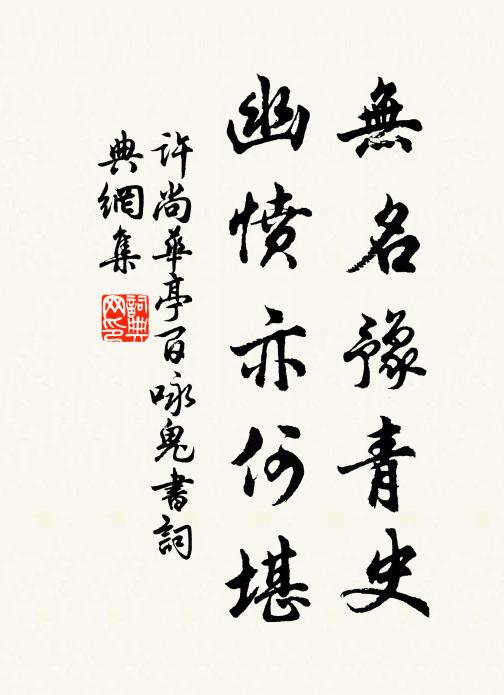 無名豫青史
幽憤亦何堪
許尚華亭百咏鬼書詞
典網集
詞典網印